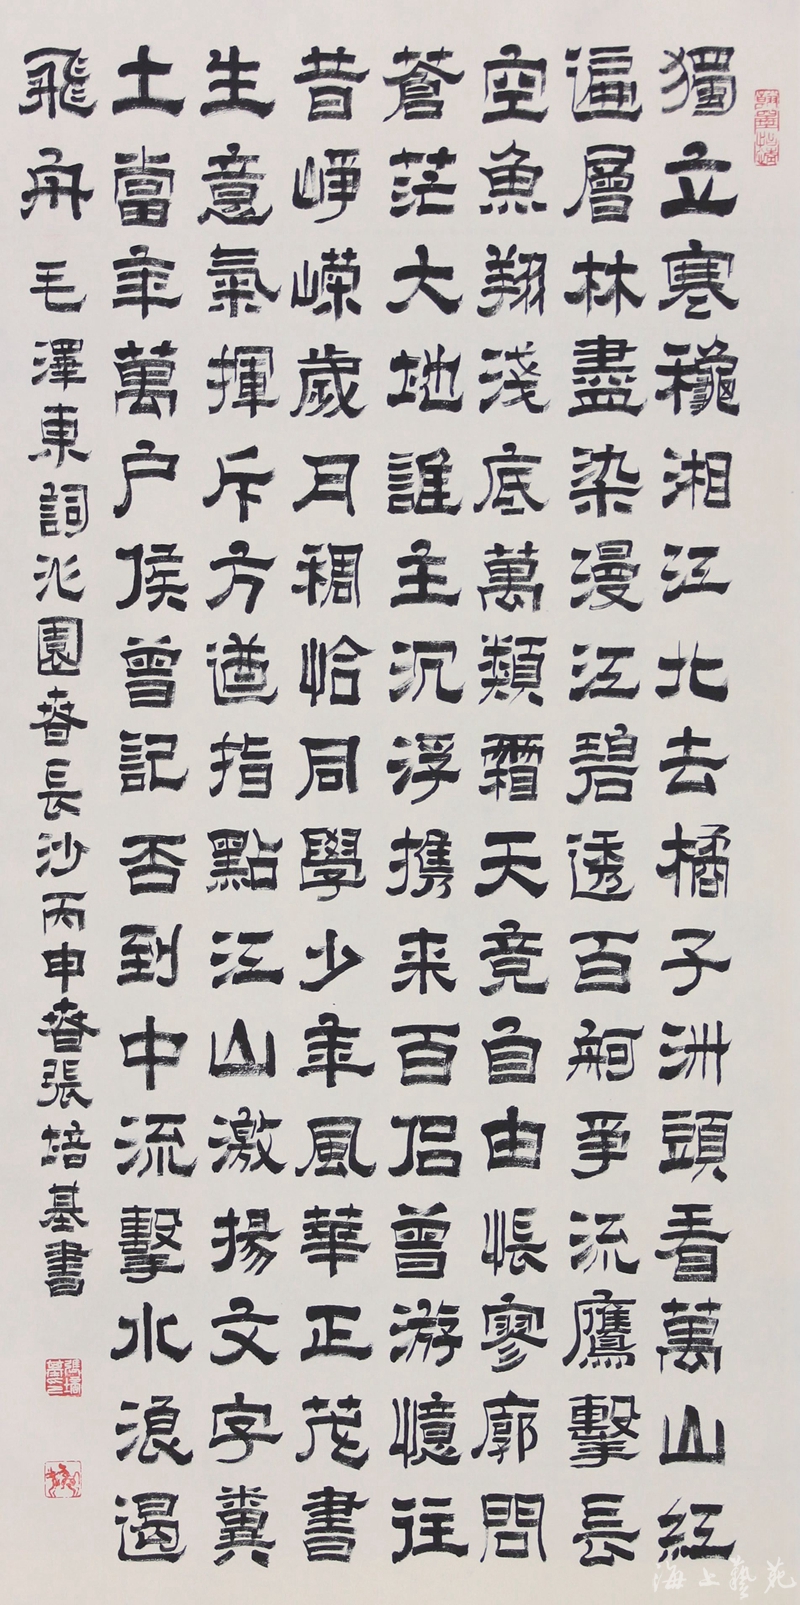 獨立寒龝湘江北去橘子洲頭看萬山紅
遍層林盡染漫江碧透百舸爭流鷹擊長
空魚翔淺底萬類霜天竞自由悵寥廓問
蒼茫大地誰主沉浮携来百侣曾游憶往
昔崢嶸歲月稠恰同學少年風華正茂書
生意氣揮斥方遒指點江山激揚文字糞
土當年萬户侯曾記否到中流擊水浪遏
飛舟 毛澤東詞沁園春長沙丙申春張培基書
海上藝苑